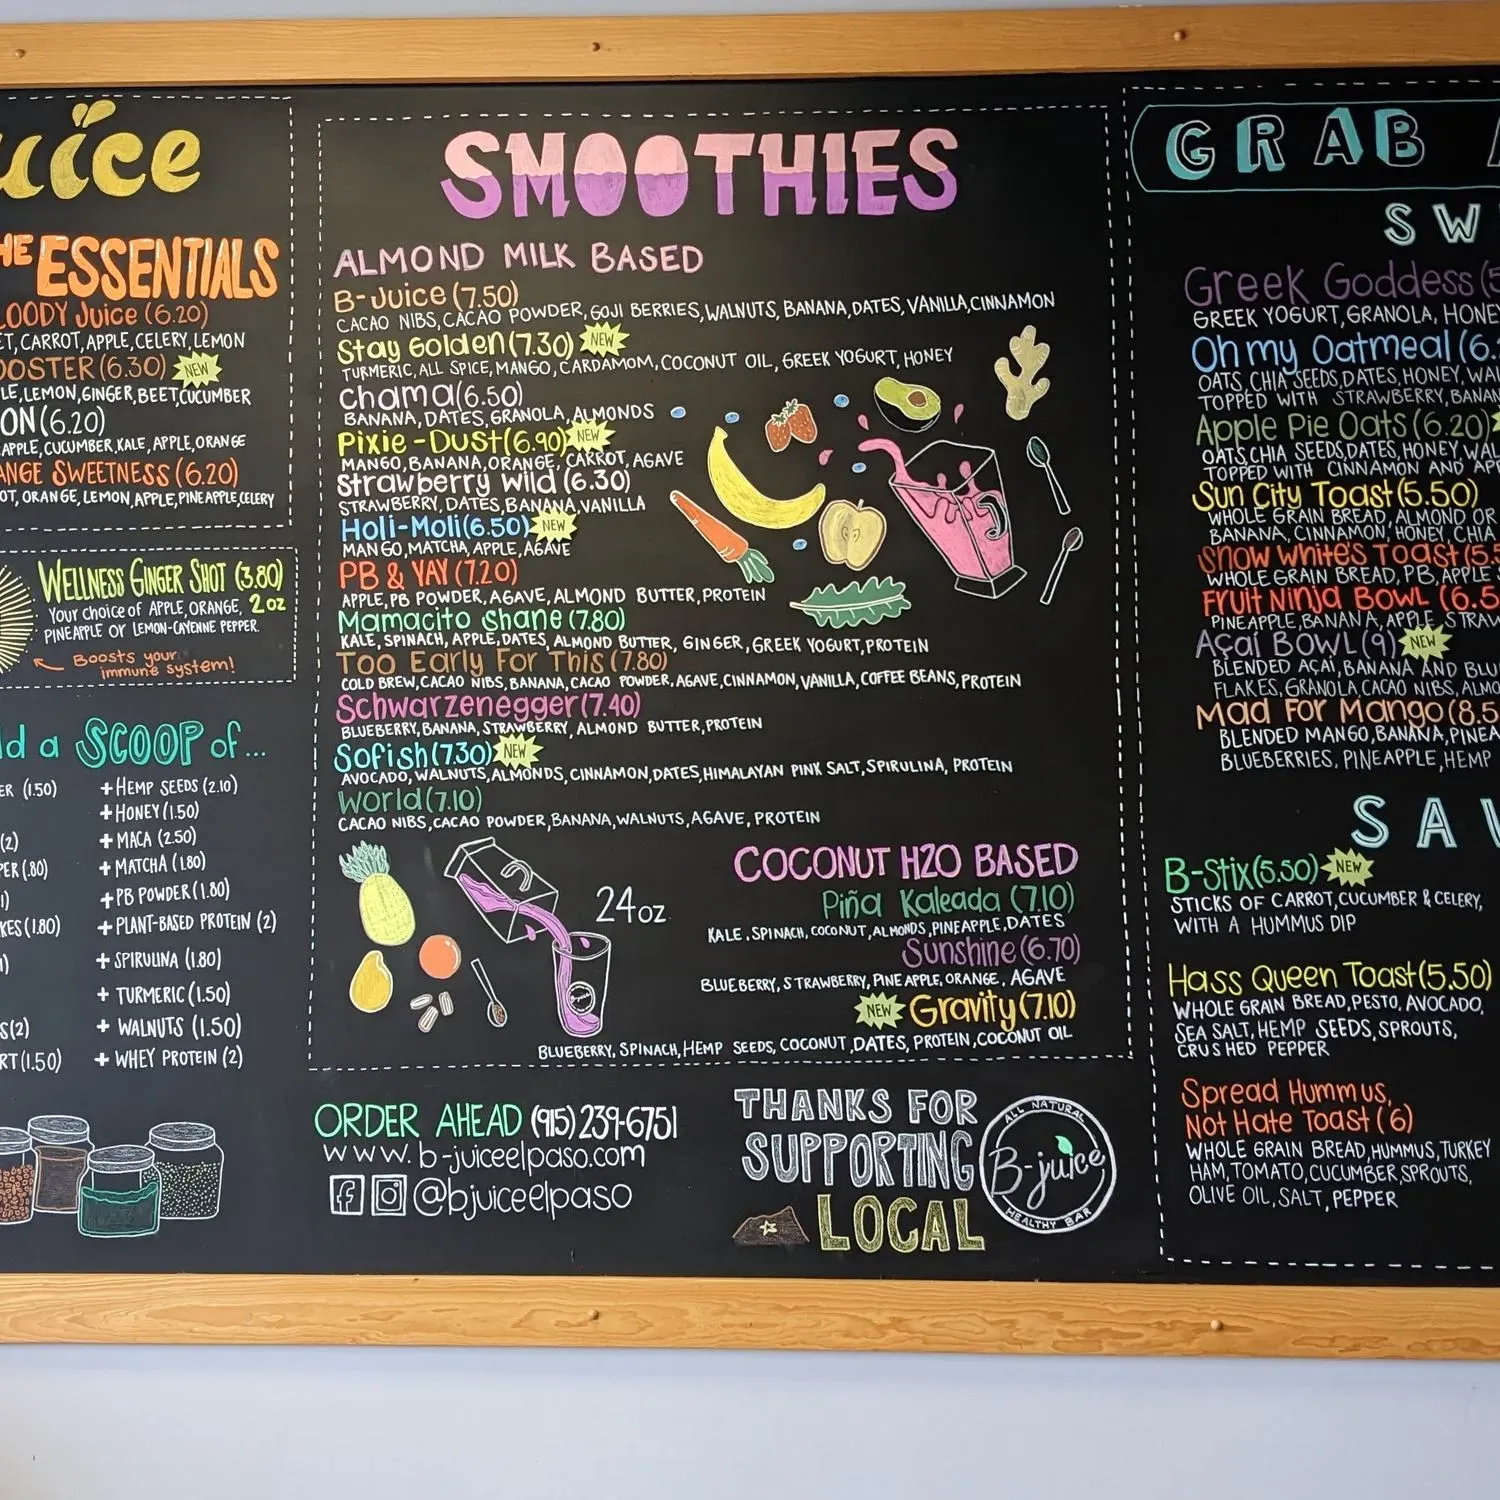 uice
HE ESSENTIALS
LOODY Juice (6.20)
ET, CARROT, APPLE, CELERY, LEMON
OOSTER (6.30) NEW
LE, LEMON, GINGER, BEET, CUCUMBER
ON (6.20)
APPLE, CUCUMBER, KALE, APPLE, ORANGE
ANGE SWEETNESS (6.20)
OT, ORANGE, LEMON, APPLE, PINEAPPLE, CELERY
WELLNESS GINGER SHOT (3.80)
YOUR CHOICE OF APPLE, ORANGE, 2 oz
PINEAPPLE OR LEMON-CAYENNE PEPPER.
BOOSTS YOUR
immune system!
d a SCOOP of...
ER (1.50)
(2)
PER (.80)
)
KES (1.80)
)
S (2)
RT (1.50)
+ HEMP SEEDS (2.10)
+ HONEY (1.50)
+ MACA (2.50)
+ MATCHA (1.80)
+ PB POWDER (1.80)
+ PLANT-BASED PROTEIN (2)
+ SPIRULINA (1.80)
+ TURMERIC (1.50)
+ WALNUTS (1.50)
+ WHEY PROTEIN (2)
SMOOTHIES
ALMOND MILK BASED
B-Juice (7.50)
CACAO NIBS, CACAO POWDER, GOJI BERRIES, WALNUTS, BANANA, DATES, VANILLA, CINNAMON
Stay Golden (7.30) NEW
TURMERIC, ALL SPICE, MANGO, CARDAMOM, COCONUT OIL, GREEK YOGURT, HONEY
Chama (6.50)
BANANA, DATES, GRANOLA, ALMONDS
Pixie-Dust (6.90) NEW
MANGO, BANANA, ORANGE, CARROT, AGAVE
Strawberry Wild (6.30)
STRAWBERRY, DATES, BANANA, VANILLA
Holi-Moli (6.50) NEW
MANGO, MATCHA, APPLE, AGAVE
PB & YAY (7.20)
APPLE, PB POWDER, AGAVE, ALMOND BUTTER, PROTEIN
Mamacito Shane (7.80)
KALE, SPINACH, APPLE, DATES, ALMOND BUTTER, GINGER, GREEK YOGURT, PROTEIN
Too Early For This (7.80)
COLD BREW, CACAO NIBS, BANANA, CACAO POWDER, AGAVE, CINNAMON, VANILLA, COFFEE BEANS, PROTEIN
Schwarzenegger (7.40)
BLUEBERRY, BANANA, STRAWBERRY, ALMOND BUTTER, PROTEIN
Sofish (7.30) NEW
AVOCADO, WALNUTS, ALMONDS, CINNAMON, DATES, HIMALAYAN PINK SALT, SPIRULINA, PROTEIN
World (7.10)
CACAO NIBS, CACAO POWDER, BANANA, WALNUTS, AGAVE, PROTEIN
24oz
COCONUT H2O BASED
Piña Kaleada (7.10)
KALE, SPINACH, COCONUT, ALMONDS, PINEAPPLE, DATES
Sunshine (6.70)
BLUEBERRY, STRAWBERRY, PINEAPPLE, ORANGE, AGAVE
NEW Gravity (7.10)
BLUEBERRY, SPINACH, HEMP SEEDS, COCONUT, DATES, PROTEIN, COCONUT OIL
ORDER AHEAD (915) 239-6751
www.b-juiceelpaso.com
@bjuiceelpaso
THANKS FOR
SUPPORTING
LOCAL
ALL NATURAL
B-juice
HEALTHY BAR
GRAB
SW
Greek Goddess (5
GREEK YOGURT, GRANOLA, HONEY
Oh my Oatmeal (6.
OATS, CHIA SEEDS, DATES, HONEY, WAL
TOPPED WITH STRAWBERRY, BANAN
Apple Pie Oats (6.20)
OATS, CHIA SEEDS, DATES, HONEY, WAL
TOPPED WITH CINNAMON AND AP
Sun City Toast (5.50)
WHOLE GRAIN BREAD, ALMOND OR
BANANA, CINNAMON, HONEY, CHIA
Snow White's Toast (5.5
WHOLE GRAIN BREAD, PB, APPLE
Fruit Ninja Bowl (6.5
PINEAPPLE, BANANA, APPLE, STRAW
Açaí Bowl (9) NEW
BLENDED AÇAÍ, BANANA AND BLU
FLAKES, GRANOLA, CACAO NIBS, ALMO
Mad For Mango (8.5
BLENDED MANGO, BANANA, PINEA
BLUEBERRIES, PINEAPPLE, HEMP
SAV
B-Stix (5.50) NEW
STICKS OF CARROT, CUCUMBER & CELERY,
WITH A HUMMUS DIP
Hass Queen Toast (5.50)
WHOLE GRAIN BREAD, PESTO, AVOCADO,
SEA SALT, HEMP SEEDS, SPROUTS,
CRUSHED PEPPER
Spread Hummus,
Not Hate Toast (6)
WHOLE GRAIN BREAD, HUMMUS, TURKEY
HAM, TOMATO, CUCUMBER, SPROUTS,
OLIVE OIL, SALT, PEPPER